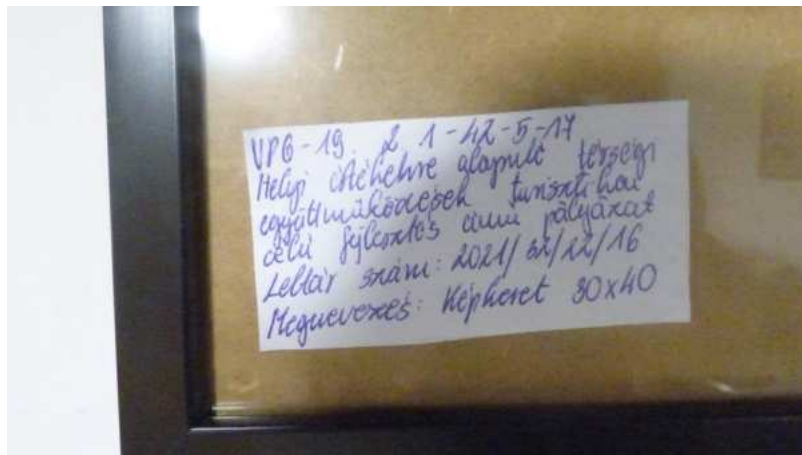 VP6-19. 2. 1-42-5-17
Helyi értékekre alapuló térségi
együttműködések turisztikai
célú fejlesztés című pályázat
Leltár szám: 2021/32/12/16
Megnevezés: Képkeret 30x40